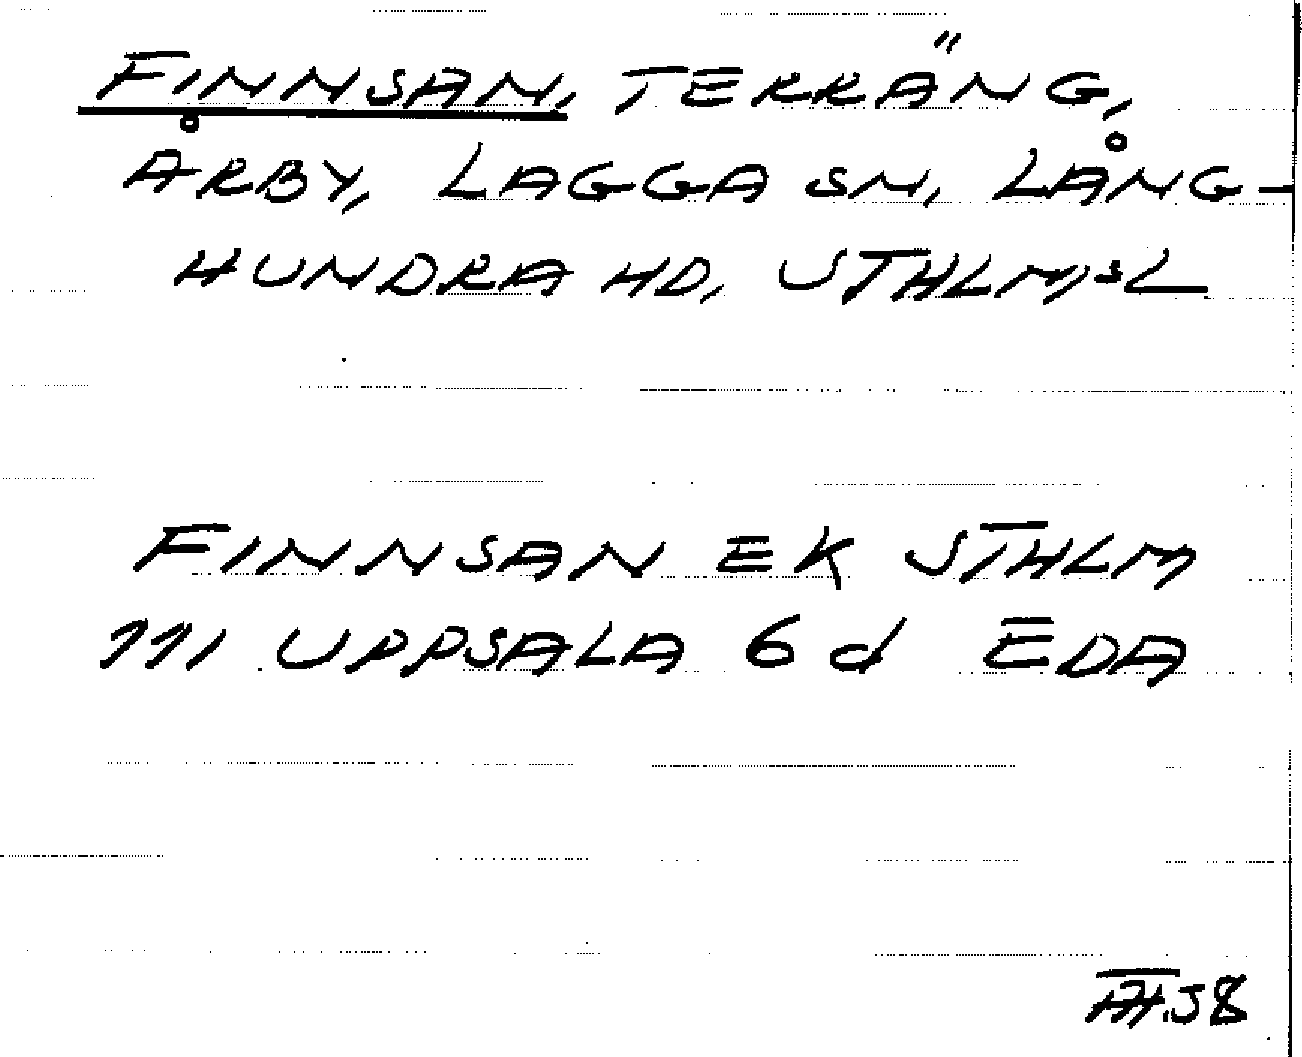 FINNSAN, TERRÄNG,
ÅRBY, LAGGA SN, LÅNG-
HUNDRA HD, STHLM,SL
FINNSAN EK STHLM
111 UPPSALA 6 d EDA